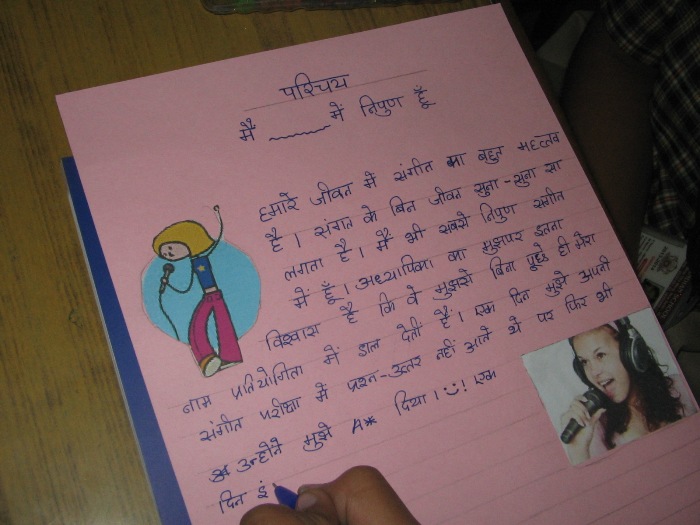 परिचय
मैं ______ में निपुण हूँ
हमारे जीवन में संगीत का बहुत महत्तव
है। संगीत के बिन जीवन सुना-सुना सा
लगता है। मैं भी सबसे निपुण संगीत
में हूँ। अध्यापिका का मुझपर इतना
विश्वास है कि वे मुझसे बिना पूछे ही मेरा
नाम प्रतियोगिता में डाल देतीं हैं। एक दिन मुझे अपनी
संगीत परीक्षा में प्रश्न-उत्तर नहीं आते थे पर फिर भी
उन्होंने मुझे A** दिया।! एक
दिन इं